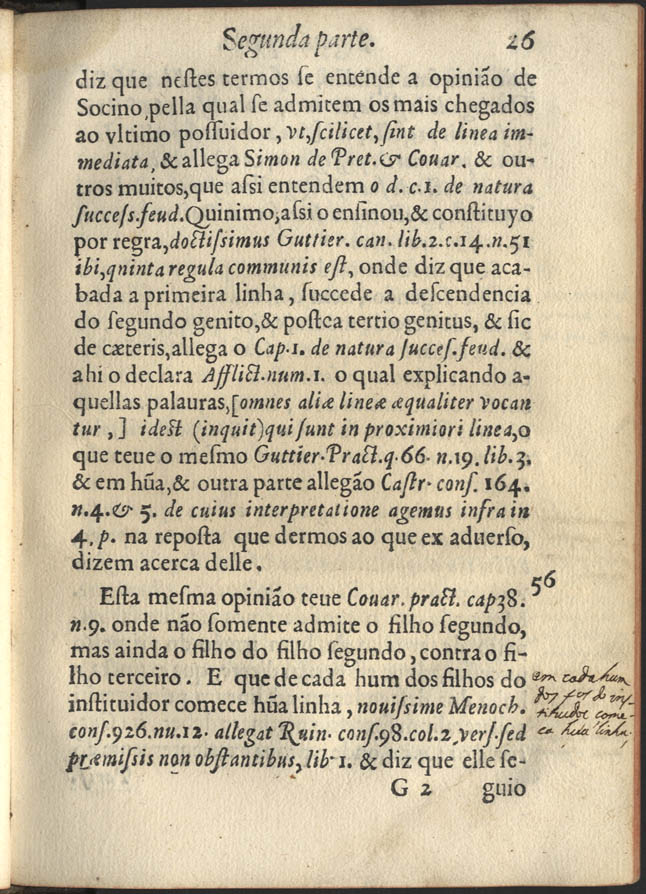 Segunda parte. 26
diz que neſtes termos ſe entende a opinião de
Socino, pella qual ſe admitem os mais chegados
ao vltimo poſſuidor, vt, ſcilicet, ſint de linea im-
mediata, & allega Simon de Pret. & Couar. & ou-
tros muitos, que aſsi entendem o d. c. 1. de natura
ſucceſs. feud. Quinimo, aſsi o enſinou, & conſtituyo
por regra, doctiſsimus Guttier. can. lib. 2. c. 14. n. 51
ibi, qninta regula communis eſt, onde diz que aca-
bada a primeira linha, ſuccede a deſcendencia
do ſegundo genito, & poſtea tertio genitus, & ſic
de cæteris, allega o Cap. 1. de natura ſucceſ. feud. &
ahi o declara Afflict. num. 1. o qual explicando a-
quellas palauras, [omnes aliæ lineæ æqualiter vocan
tur,] ideſt (inquit) qui ſunt in proximiori linea, o
que teue o meſmo Guttier. Pract. q. 66. n. 19. lib. 3.
& em hũa, & outra parte allegão Caſtr. conſ. 164.
n. 4. & 5. de cuius interpretatione agemus infra in
4. p. na repoſta que dermos ao que ex aduerſo,
dizem acerca delle.
56
Eſta meſma opinião teue Couar. pract. cap 38.
n. 9. onde não ſomente admite o filho ſegundo,
mas ainda o filho do filho ſegundo, contra o fi-
lho terceiro. E que de cada hum dos filhos do
inſtituidor comece hũa linha, nouiſsime Menoch.
conſ. 926. nu. 12. allegat Ruin. conſ. 98. col. 2. verſ. ſed
præmiſsis non obſtantibus, lib. 1. & diz que elle ſe-
G 2 guio
em cada hum
dos fos do inſ-
tituidor come-
ca hũa linha,